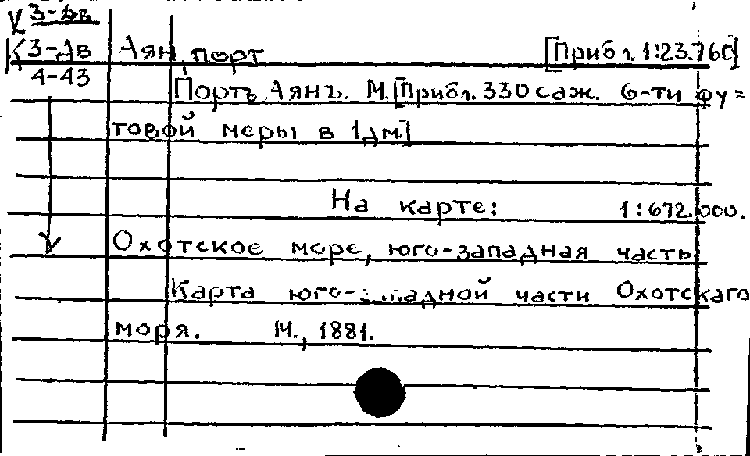 К 3-Дв
К 3-Дв Аян, порт [Прибл. 1:23.760]
4-43 Портъ Аянъ. М.[Прибл. 330 саж. 6-ти фу=
товой меры в 1 дм.]
На карте: 1:672.000.
Охотское море, юго-западная часть
Карта юго-западной части Охотскаго
моря. М., 1881.